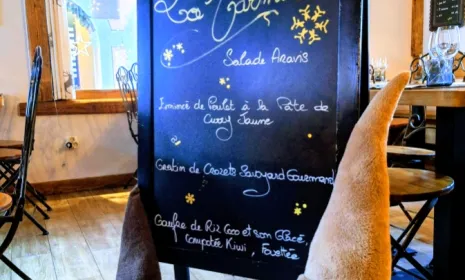 Salade Aravis
Emincé de Poulet à la Pâte de
Curry Jaune
Gratin de Crozets Savoyard Gourmand
Gaufre de Riz Coco et son Glacé,
Compotée Kiwi, Fouettée